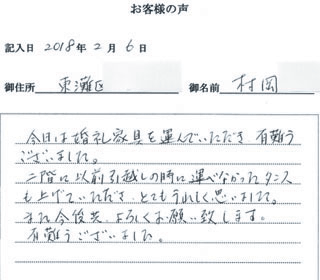 お客様の声
記入日 2018年 2月 6日
御住所 東灘区 御名前 村岡
今日は婚礼家具を運んでいただき 有難う
ございました。
二階に以前引越しの時に運べなかったタンス
も上げていただき、とてもうれしく思いました。
また今後共、よろしくお願い致します。
有難うございました。